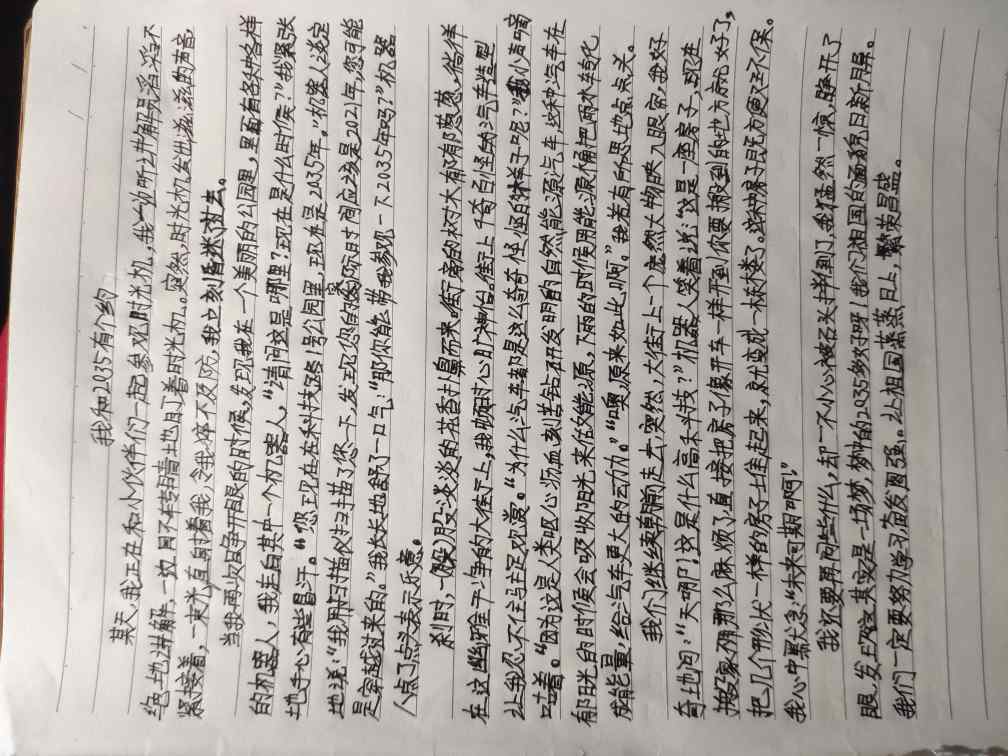 我和2035有个约
某天，我正在和小伙伴们一起参观时光机，我一边听2井解员滔滔不
绝地讲解，一边目不转睛地盯着时光机。突然，时光机发出滋滋的声音，
紧接着，一束光直射着我，令我猝不及防，我立刻昏迷过去。
当我再次睁开眼的时候，发现我在一个美丽的公园里，里面有各式各样
的机器人，我走向其中一个机器人，“请问这是哪里？现在是什么时候？”我紧张
地手心有些冒汗。“您现在在科技路1号公园里，现在是2035年。”机器人淡定
地说：“我用扫描仪扫描了您一下，发现您的实际时间应该是2021年，您可能
是穿越过来的。”我长长地舒了一口气：“那你能带我参观一下2035年吗？”机器
人点了点头表示乐意。
刹时，一股淡淡的花香扑鼻而来，街旁的树木郁郁葱葱，徜徉
在这幽雅干净的大街上，我顿时心旷神怡。街上千奇百怪的汽车造型
让我忍不住驻足观赏。“为什么汽车都是这么奇奇怪怪的样子呢？”我小声嘀
咕着。“因为这是人类呕心沥血刻苦钻研发明的自然能源汽车，这种汽车在
有阳光的时候会吸收阳光来作为能源，下雨的时候用能源桶把雨水转化
成能量，给汽车更大的动力。”“噢，原来如此啊。”我若有所思地点点头。
我们继续朝前走去，突然，大街上一个庞然大物映入眼帘，我好
奇地问：“天啊！这是什么高科技？”机器人笑着说：“这是一座房子，现在
搬家不用那么麻烦了，直接把房子像开车一样开到你要搬到的地方就好了，
把几个形状一样的房子堆起来，就变成一栋楼了。这种房子既方便又环保。
我心中默念：“未来可期啊！”
我还要再问些什么，却一不小心被石头绊倒了，我猛然一惊，睁开了
眼，发现这其实是一场梦，梦中的2035多好呀！我们祖国的面貌日新月异。
我们一定要努力学习，奋发图强。让祖国蒸蒸日上，繁荣昌盛。